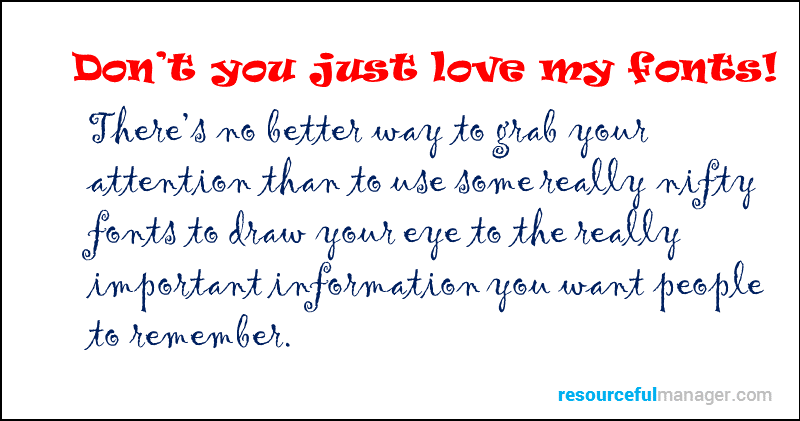 Don't you just love my fonts!
There's no better way to grab your
attention than to use some really nifty
fonts to draw your eye to the really
important information you want people
to remember.
resourcefulmanager.com